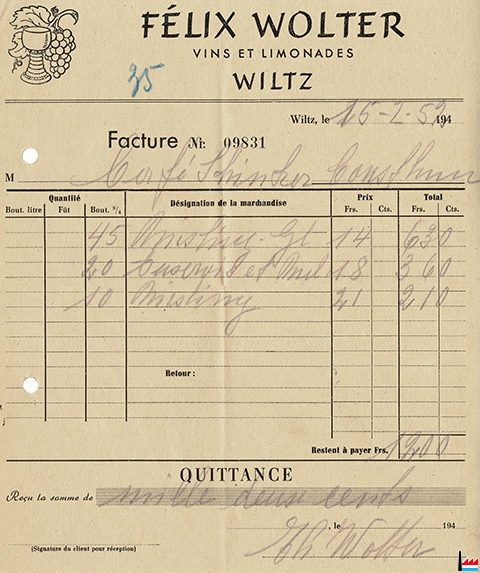 FÉLIX WOLTER
VINS ET LIMONADES
35
WILTZ
Wiltz, le 15-2-52 194
Facture No: 09831
M Café Schinker Consthum
Quantité Désignation de la marchandise Prix Total
Bout. litre Fût Bout. 3/4 Frs. Cts. Frs. Cts.
45 14 630
20 18 360
10 Riesling 21 210
Retour :
Restent à payer Frs. 1200
QUITTANCE
Reçu la somme de mille deux cents
, le 194
Wolter
(Signature du client pour réception)